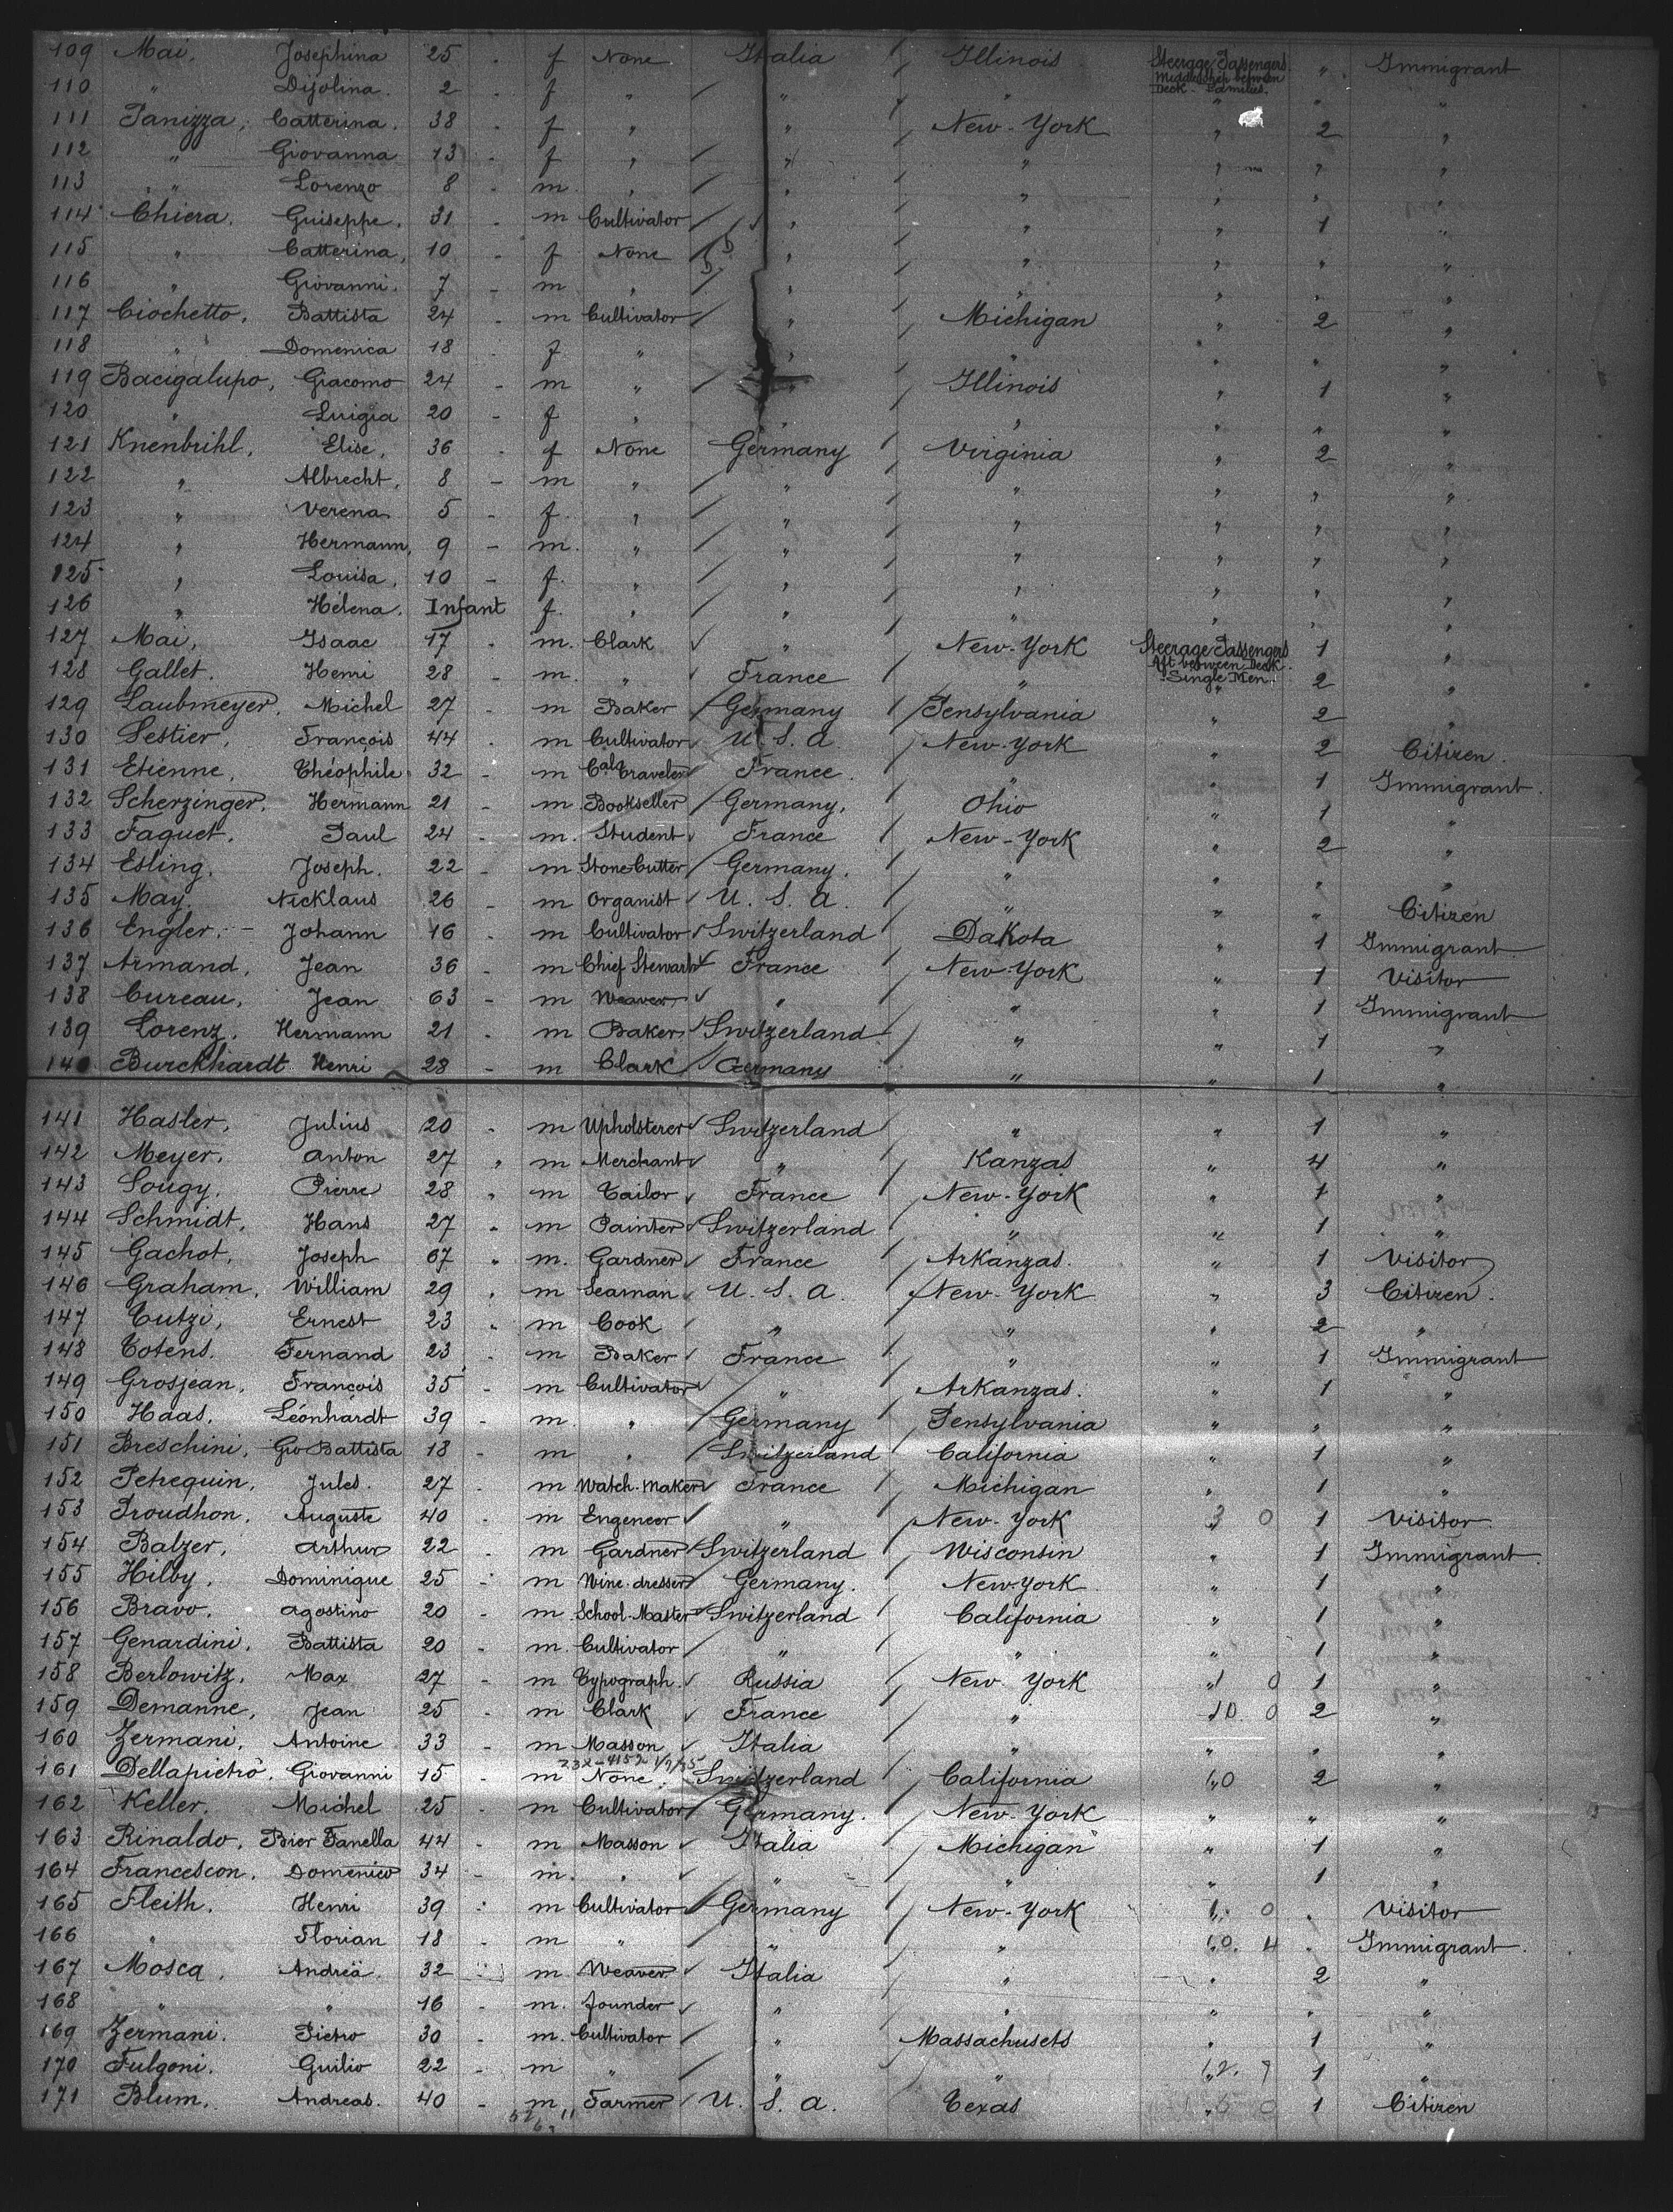 109 Mai, Josephina 25 - f None Italia Illinois Steerage Passengers Middleship between Deck - Families. " Immigrant
110 " Dijolina. 2 - f " " " " " "
111 Panizza, Catterina. 38 - f " " New-York " 2 "
112 " Giovanna 13 - f " " " " " "
113 " Lorenzo 8 - m " " " " " "
114 Chiera. Guiseppe. 31 - m Cultivator " " " 1 "
115 " Catterina, 10 - f None " " " " "
116 " Giovanni. 7 - m " " " " " "
117 Ciochetto. Battista 24 - m Cultivator " Michigan " 2 "
118 " Domenica 18 - f " " " " " "
119 Bacigalupo, Giacomo 24 - m " " Illinois " 1 "
120 " Luigia 20 - f " " " " " "
121 Knenbrihl, Elise, 36 - f None Germany Virginia " 2 "
122 " Albrecht, 8 - m " " " " " "
123 " Verena 5 - f. " " " " " "
124 " Hermann, 9 - m. " " " " " "
125 " Louisa, 10 - f. " " " " " "
126 " Hélena. Infant f. " " " " " "
127 Mai, Isaac 17 - m. Clark " New-York Steerage Passengers Aft between Deck. Single Men. 1 "
128 Gallet. Henri 28 - m. " France " " 2 "
129 Laubmeyer, Michel 27 - m Baker Germany Pensylvania " 2 "
130 Sestier, François 44 - m Cultivator U. S. a New-York " 2 Citizen.
131 Etienne, Théophile 32 - m Cal Traveler France. " " 1 Immigrant.
132 Scherzinger, Hermann 21 - m Bookseller Germany, Ohio " 1 "
133 Faguet, Paul 24 - m. Student France New-York " 2 "
134 Esling. Joseph. 22 - m Stone Cutter Germany. " " " "
135 May. Nicklaus 26 - m Organist U. S. a. " " " Citizen
136 Engler. - Johann 16 - m Cultivator Switzerland Dakota " 1 Immigrant
137 Armand, Jean 36 - m Chief Stewart France New-York " 1 Visitor
138 Cureau, Jean 63 - m Weaver " " " 1 Immigrant
139 Lorenz. Hermann 21 - m Baker Switzerland " " 1 "
140 Burckhardt Henri 28 - m Clark Germany " " 1 "
141 Hasler, Julius 20 - m Upholsterer Switzerland " " 1 "
142 Meyer. Anton 27 - m Merchant " Kanzas " 4 "
143 Sougy. Pierre 28 - m Tailor France New-York " 1 "
144 Schmidt, Hans 27 - m Painter Switzerland " " 1 "
145 Gachot, Joseph 67 - m. Gardner France Arkanzas. " 1 Visitor
146 Graham, William 29 - m Seaman U. S. a. New-York " 3 Citizen.
147 Tutzi, Ernest 23 - m Cook " " " 2 "
148 Totens. Fernand 23 - m Baker France " " 1 Immigrant
149 Grosjean, François 35 - m Cultivator " Arkanzas. " 1 "
150 Haas, Léonhardt 39 - m " Germany Pensylvania " " "
151 Breschini, Gio Battista 18 - m " Switzerland California " 1 "
152 Petrequin, Jules. 27 - m Watch-Maker France Michigan " 1 "
153 Proudhon, Auguste 40 - m Engeneer " New-York 3 0 1 Visitor.
154 Balzer, Arthur 22 - m Gardner Switzerland Wisconsin " 1 Immigrant.
155 Hilby, Dominique 25 - m Wine-dresser Germany. New-York " 1 "
156 Bravo, Agostino 20 - m School-Master Switzerland California " 1 "
157 Genardini, Battista 20 - m. Cultivator " " " 1 "
158 Berlowitz, Max 27 - m Typograph. Russia New York 1 0 1 "
159 Demanne, Jean 25 - m Clark France " 10. 0 2 "
160 Zermani, Antoine 33 - m Masson Italia " " " "
161 Dellapietro, Giovanni 15 - m None. Switzerland California 10 2 "
162 Keller. Michel 25 - m Cultivator Germany. New-York " " "
163 Rinaldo. Pier Fanella 44 - m Masson Italia Michigan " 1 "
164 Francescon. Domenico 34 - m. " " " " 1 "
165 Fleith. Henri 39 - m Cultivator Germany New-York 1 0 " Visitor
166 " Florian 18 - m " " " 10. 4 " Immigrant.
167 Mosca, Andréa. 32 m Weaver Italia " " 2 "
168 " " 16 - m. founder " " " " "
169 Zermani. Pietro 30 - m. Cultivator " Massachusets " 1 "
170 Fulgoni. Guilio 22 - m " " " 12. 7 1 "
171 Blum. Andreas. 40 - m Farmer U. S. a. Texas " 0 1 Citizen